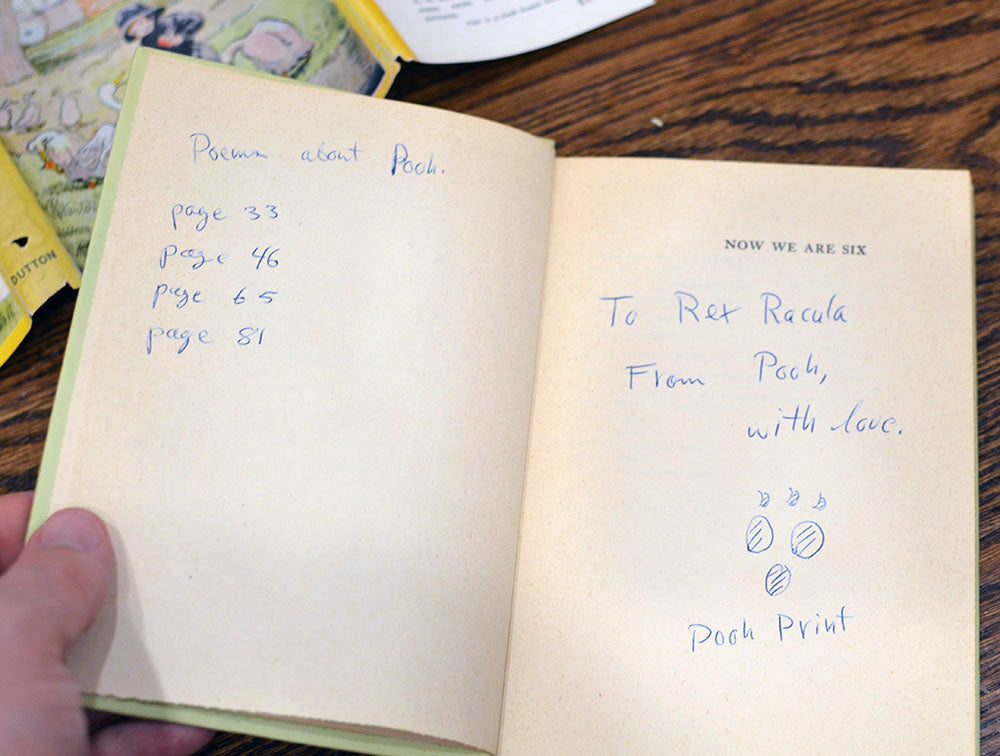 Poems about Pooh.
page 33
page 46
page 65
page 81
NOW WE ARE SIX
To Rex Racula
From Pooh,
with love.
Pooh Print
DUTTON